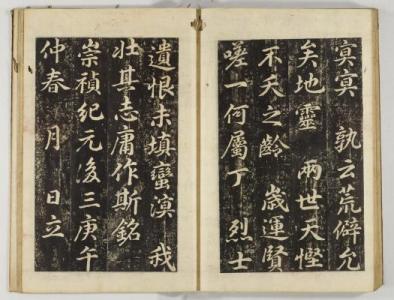 寞寞 孰云荒僻允
矣地靈 兩世天慳
不夭之齡 歲運賢
嗟一何屬丁 烈士
遺恨未塡蠻溟 我
壯其志庸作斯銘
崇禎紀元後三庚午
仲春 月 日立